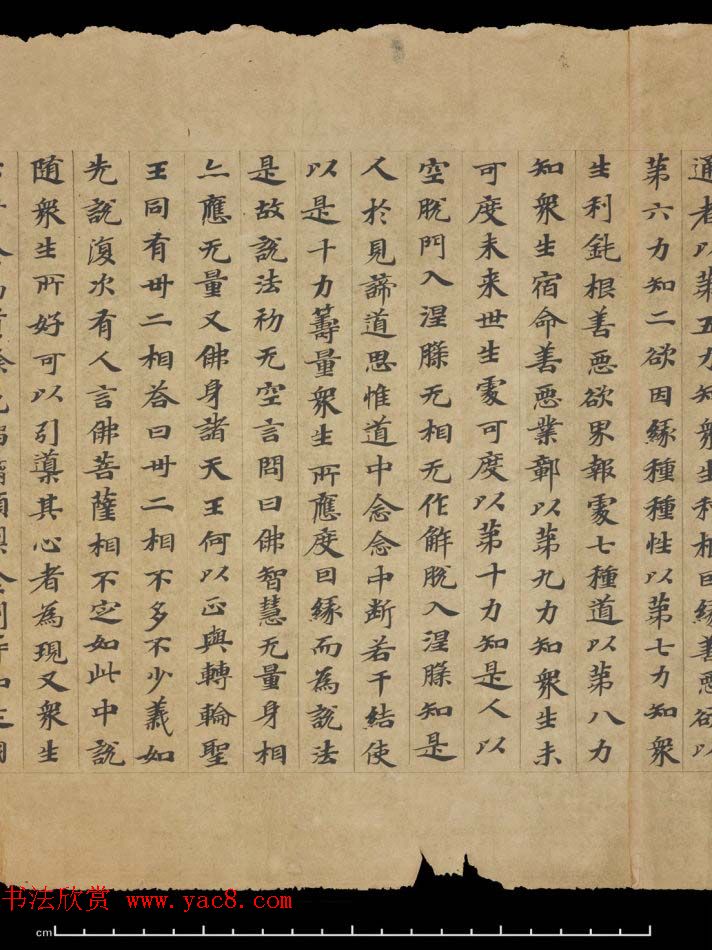 通者以苐五力知衆生利根因縁善惡欲以
苐六力知二欲因縁種種性以苐七力知衆
生利鈍根善惡欲界報䖏七種道以苐八力
知衆生宿命善惡業鄣以苐九力知衆生未
可度未来世生䖏可度以苐十力知是人以
空脫門入涅槃无相无作解脫入涅槃知是
人於見諦道思惟道中念念中断若干結使
以是十力籌量衆生所應度因縁而為說法
是故說法初无空言問曰佛智慧无量身相
亦應无量又佛身諸天王何以正與轉輪聖
王同有卅二相荅曰卅二相不多不少義如
先說復次有人言佛菩薩相不定如此中說
随衆生所好可以引導其心者為現又衆生
书法欣赏 www.yac8.com
cm